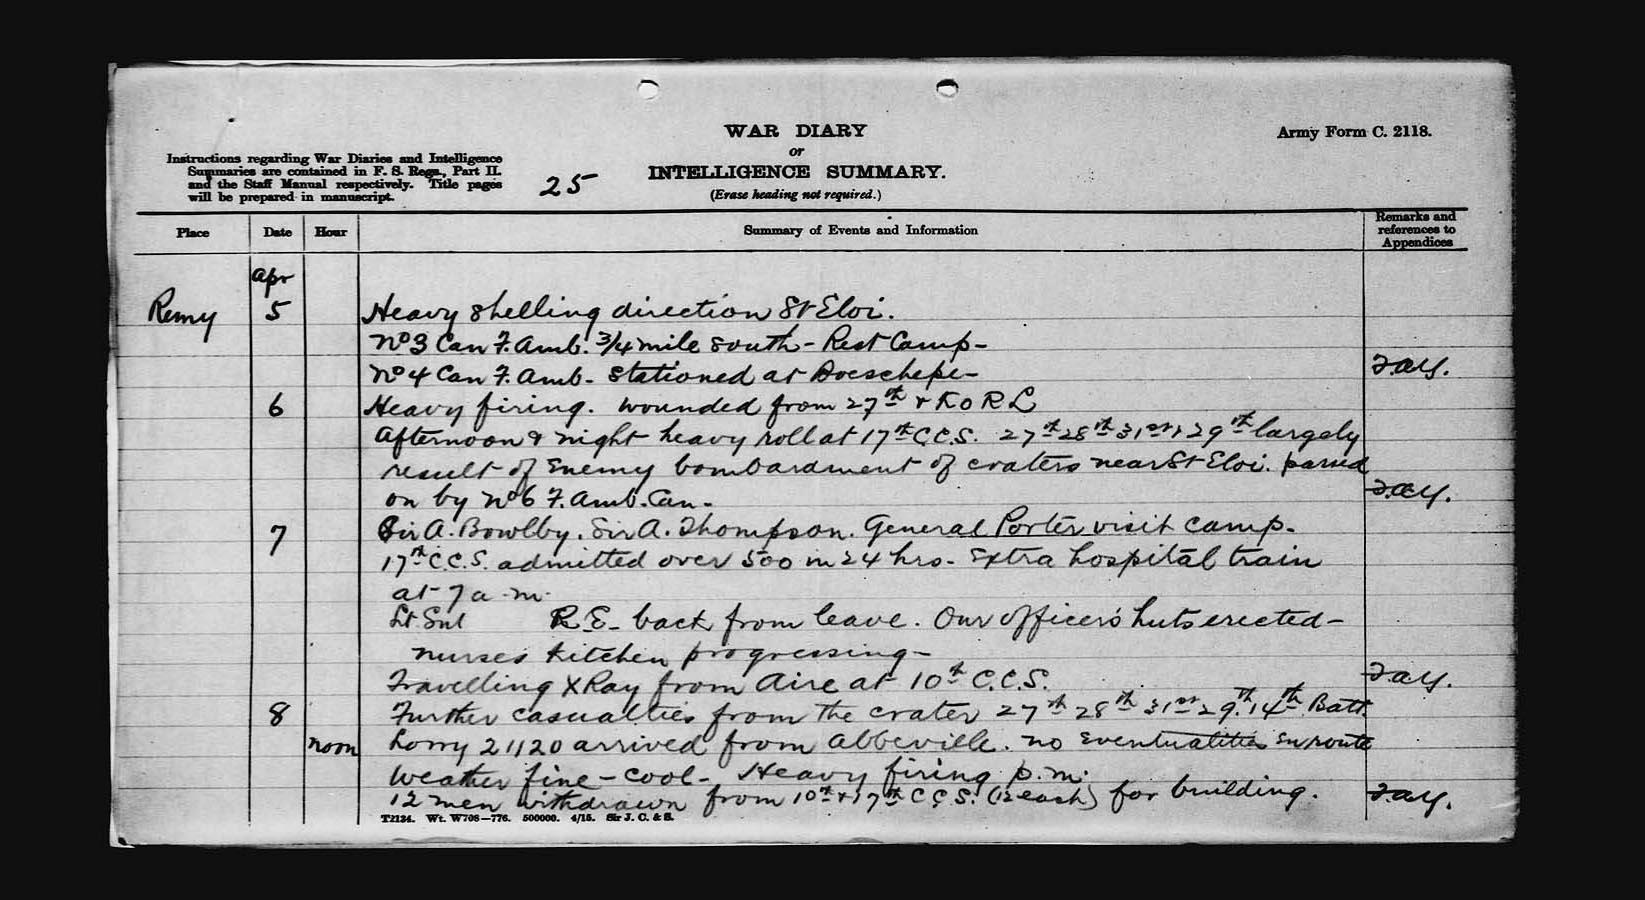 WAR DIARY
or
INTELLIGENCE SUMMARY.
(Erase heading not required.)
Army Form C. 2118.
Instructions regarding War Diaries and Intelligence
Summaries are contained in F. S. Regs., Part II.
and the Staff Manual respectively. Title pages
will be prepared in manuscript.
25
Place Date Hour Summary of Events and Information Remarks and references to Appendices
Apr
Remy 5 Heavy shelling direction St Eloi.
No 3 Can F. Amb. 3/4 mile south - Rest Camp -
No 4 Can F. Amb - Stationed at Boeschepe - F.A.Y.
6 Heavy firing. Wounded from 27th & K O R L
Afternoon & night heavy roll at 17th C.C.S. 27th 28th 31st & 29th largely
result of Enemy bombardment of craters near St Eloi. passed
on by No 6 F. Amb. Can - F.A.Y.
7 Sir A. Bowlby. Sir A. Thompson. General Porter visit camp -
17th C.C.S. admitted over 500 in 24 hrs - Extra hospital train
at 7 a.m.
Lt R.E - back from leave. Our officers' huts erected -
nurses kitchen progressing -
Travelling X Ray from Aire at 10th C.C.S. F.A.Y.
8 Further casualties from the crater 27th 28th 31st 29th 14th Batt.
noon Lorry 21120 arrived from Abbeville. no eventualities en route
Weather fine - cool - Heavy firing p.m.
12 men withdrawn from 10th & 17th C C S. (12 each) for building. F.A.Y.
T2134. Wt. W708—776. 500000. 4/15. Sir J. C. & S.